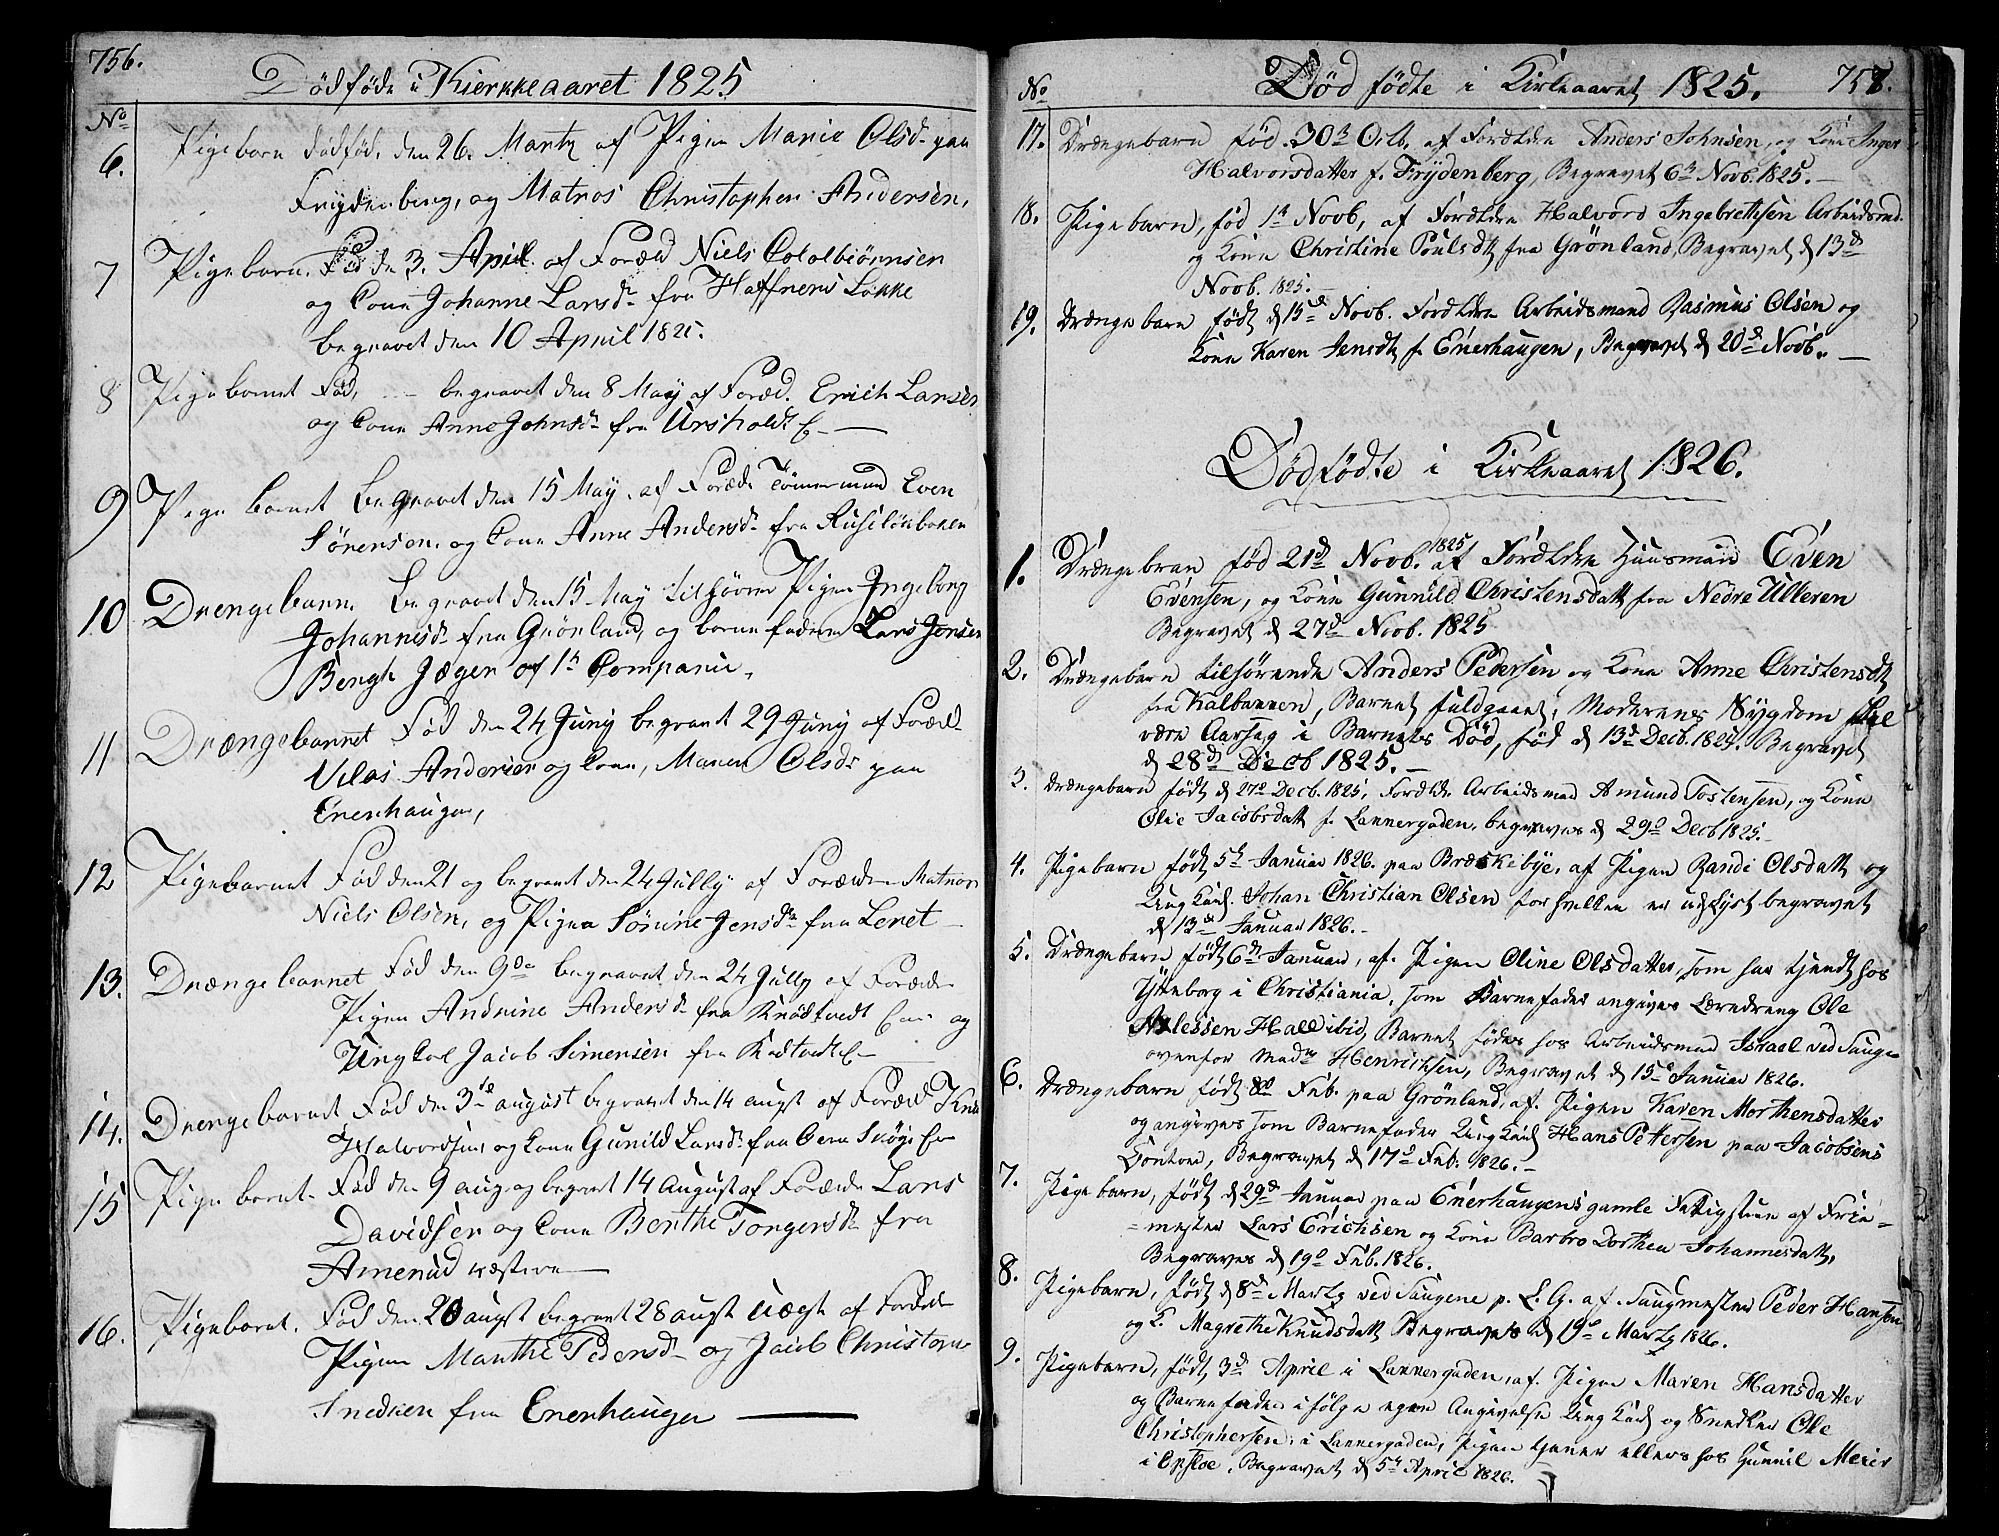 756.
Dödföde i Kierkkeaaret 1825
No
6. Pigebarn dödföd, den 26. Martz af Pigen Marie Olsd. paa
Frydenberg, og Matros Christopher Andersen,
7 Pigebarn. Fød den 3. April. af Foræld Niels Colbiörnsen
og Cone Johanne Larsdr fra Haffneris Løkke
begravet den 10 April 1825.
8 Pigebarnet Fød, begravet den 8 May af Foræd. Erich Larsen
og Cone Anne Johnsdr fra Ursholdt E
9 Pigebarnet begravet den 15 May. af Foræd. Tömermand Even
Sörensen. og Cone Anne Andersdr fra Ruseløkbaken
10 Drengebarn. begravet den 15 May tilhörer Pigen Ingeborg
Johannisdr fra Grönland, og barnefaderen Lars Jensen
Bergh Jæger af 1ste Compani.
11 Drængebarnet Fød den 24 Juny begravet 29 Juny af Foræld
Nilas Andersen og Cone, Maren Olsdr paa
Enerhaugen,
12 Pigebarnet Fød den 21 og begravet den 24 Jully af Foræld. Matros
Niels Olsen, og Pigen Sörine Jensdr fra Leret
13. Drængebarnet Fød den 9de begravet den 24 Jully af Forælde
Pigen Andrine Andersdr fra Knödtvedt Eie og
Ungkal Jacob Simensen fra E
14. Drengebarnet Fød den 3de august begravet den 14 augst af Foræld
Halvordsen og Cone Gunild Larsdr fra
15 Pigebarnet. Fød den 9 aug og begravet 14 August af Forælde Lars
Davidsen og Cone Berthe Torgersdr fra
Amerud westre
16. Pigebarnet. Fød den 20 augst begravet 28 augst uægte af Forælde
Pigen Marthe Pedersdr og Jacob Christopher
Snedker fra Enerhaugen
No Död födte i Kirkeaaret 1825. 757.
17. Drængebarn född. 30te Octb. af Foreldre Anders Johnsen, og Kone Inger
Halvorsdatter f. Frydenberg, Begravet 6te Novb. 1825.
18. Pigebarn, född 1te Novb, af Foreldre Halvord Ingebrettsen Arbeidsmd.
og Kone Christine Poulsdtr fra Grönland, Begravet d 13de
Novb. 1825.
19. Drængebarn födt d 15de Novb. Foreldre Arbeidsmand Rasmus Olsen og
Kone Karen Jensdtr f. Enerhaugen, Begravet d 20de Novb.
Dödfödte i Kirkeaaret 1826.
1. Drængebran född 21de Novb. 1825 af Foreldre Huusmand Even
Evensen, og Kone Gunnild Christensdatt fra Nedre Ulleren
Begravet d 27de Novb. 1825
2. Drængebarn tilhörende Anders Pedersen og Kone Anne Christensdt
fra Kalbannen, Barnet fuldgaaet; Moderenes Sygdom skal
være Aarsag i Barnets Död, född d 13de Decb. 1825. Begravet
d 28de Decb 1825.
3. Drængebarn födt d 27de Decb. 1825, Foreldre Arbeidsmand Amund Tostensen, og Kone
Olie Jacobsdatt f. Lannergaden, begraves d 29de Decb 1825.
4. Pigebarn födt 5te Januar 1826. paa Bræskebye, af Pigen Randi Olsdatt og
Ungkarl. Johan Christian Olsen for hvilken er udlyst begravet
d 13de Januar 1826.
5. Drængebarn födt 6te Januar, af. Pigen Oline Olsdatter, som har tjendt hos
Ytteborg i Christiania, som Barnefader angives Læredreng Ole
Nilessen Hall ibid, Barnet födes hos Arbeidsmand Israel ved Sauge
ovenfor Madm Henrichsen, Begravet d 15de Januar 1826.
6. Drængebarn födt 8de Feb. paa Grönland, af. Pigen Karen Morthensdatter
og angives som Barnefader Ungkarl Hans Pettersen paa Jacobsens
Contoir, Begravet d 17de Feb. 1826.
7. Pigebarn, födt d 29de Januar paa Enerhaugens gamle Fattigstue af Frie-
mester Lars Erichsen og Kone Barbro Dorthea Johannesdatt,
Begraves d 19de Feb. 1826.
8. Pigebarn, födt d 8de Martz ved Saugene p. L. G. af. Saugmester Peder Hansen
og K. Magrethe Knudsdatt Begraves d 19de Martz 1826.
9. Pigebarn, födt, 3de April i Lannergaden, af. Pigen Maren Hansdatter
og Barnefader ifölge egen Angivelse Ungkarl og Snedker Ole
Christophersen, i Lannergaden, Pigen tjener ellers hos Gunnil Meier
i Opsloe, Begravet d 5te April 1826.